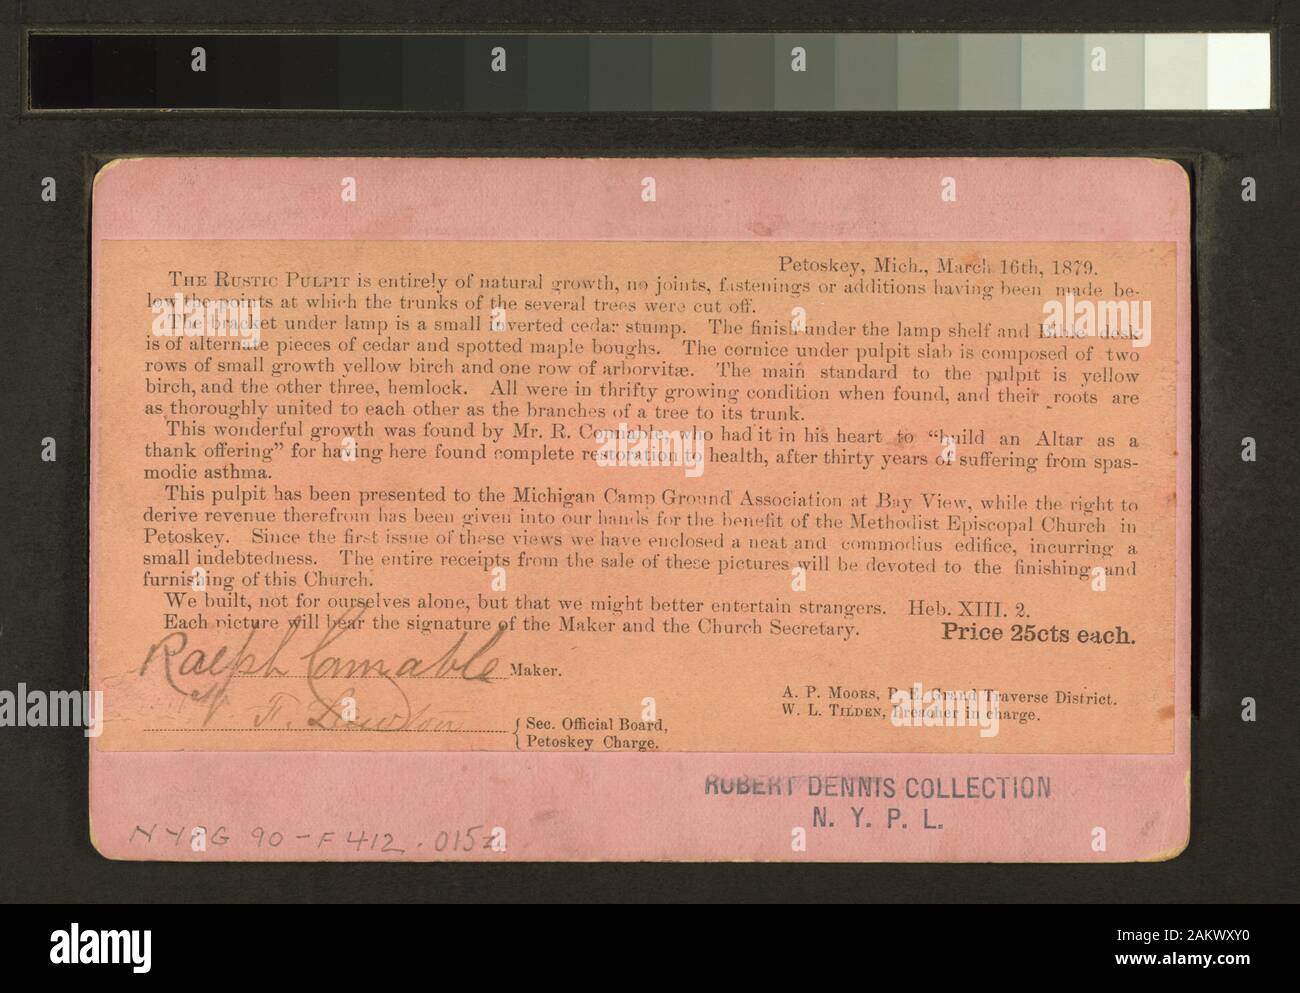 Petoskey, Mich., March 16th, 1879.
THE RUSTIC PULPIT is entirely of natural growth, no joints, fastenings or additions having been made be-
low the points at which the trunks of the several trees were cut off.
The bracket under lamp is a small inverted cedar stump. The finish under the lamp shelf and Bible desk
is of alternate pieces of cedar and spotted maple boughs. The cornice under pulpit slab is composed of two
rows of small growth yellow birch and one row of arborvitæ. The main standard to the pulpit is yellow
birch, and the other three, hemlock. All were in thrifty growing condition when found, and their roots are
as thoroughly united to each other as the branches of a tree to its trunk.
This wonderful growth was found by Mr. R. Connable, who had it in his heart to “build an Altar as a
thank offering” for having here found complete restoration to health, after thirty years of suffering from spas-
modic asthma.
This pulpit has been presented to the Michigan Camp Ground Association at Bay View, while the right to
derive revenue therefrom has been given into our hands for the benefit of the Methodist Episcopal Church in
Petoskey. Since the first issue of these views we have enclosed a neat and commodius edifice, incurring a
small indebtedness. The entire receipts from the sale of these pictures will be devoted to the finishing and
furnishing of this Church.
We built, not for ourselves alone, but that we might better entertain strangers. Heb. XIII. 2.
Each picture will bear the signature of the Maker and the Church Secretary. Price 25cts each.
Ralph Connable Maker.
A. P. MOORS, P. E. Grand Traverse District.
W. L. TILDEN, Preacher in charge.
F. Sec. Official Board,
Petoskey Charge.
ROBERT DENNIS COLLECTION
N. Y. P. L.
NYPG 90-F412.015z
a alamy
Image ID: 2AKWXY0
www.alamy.com